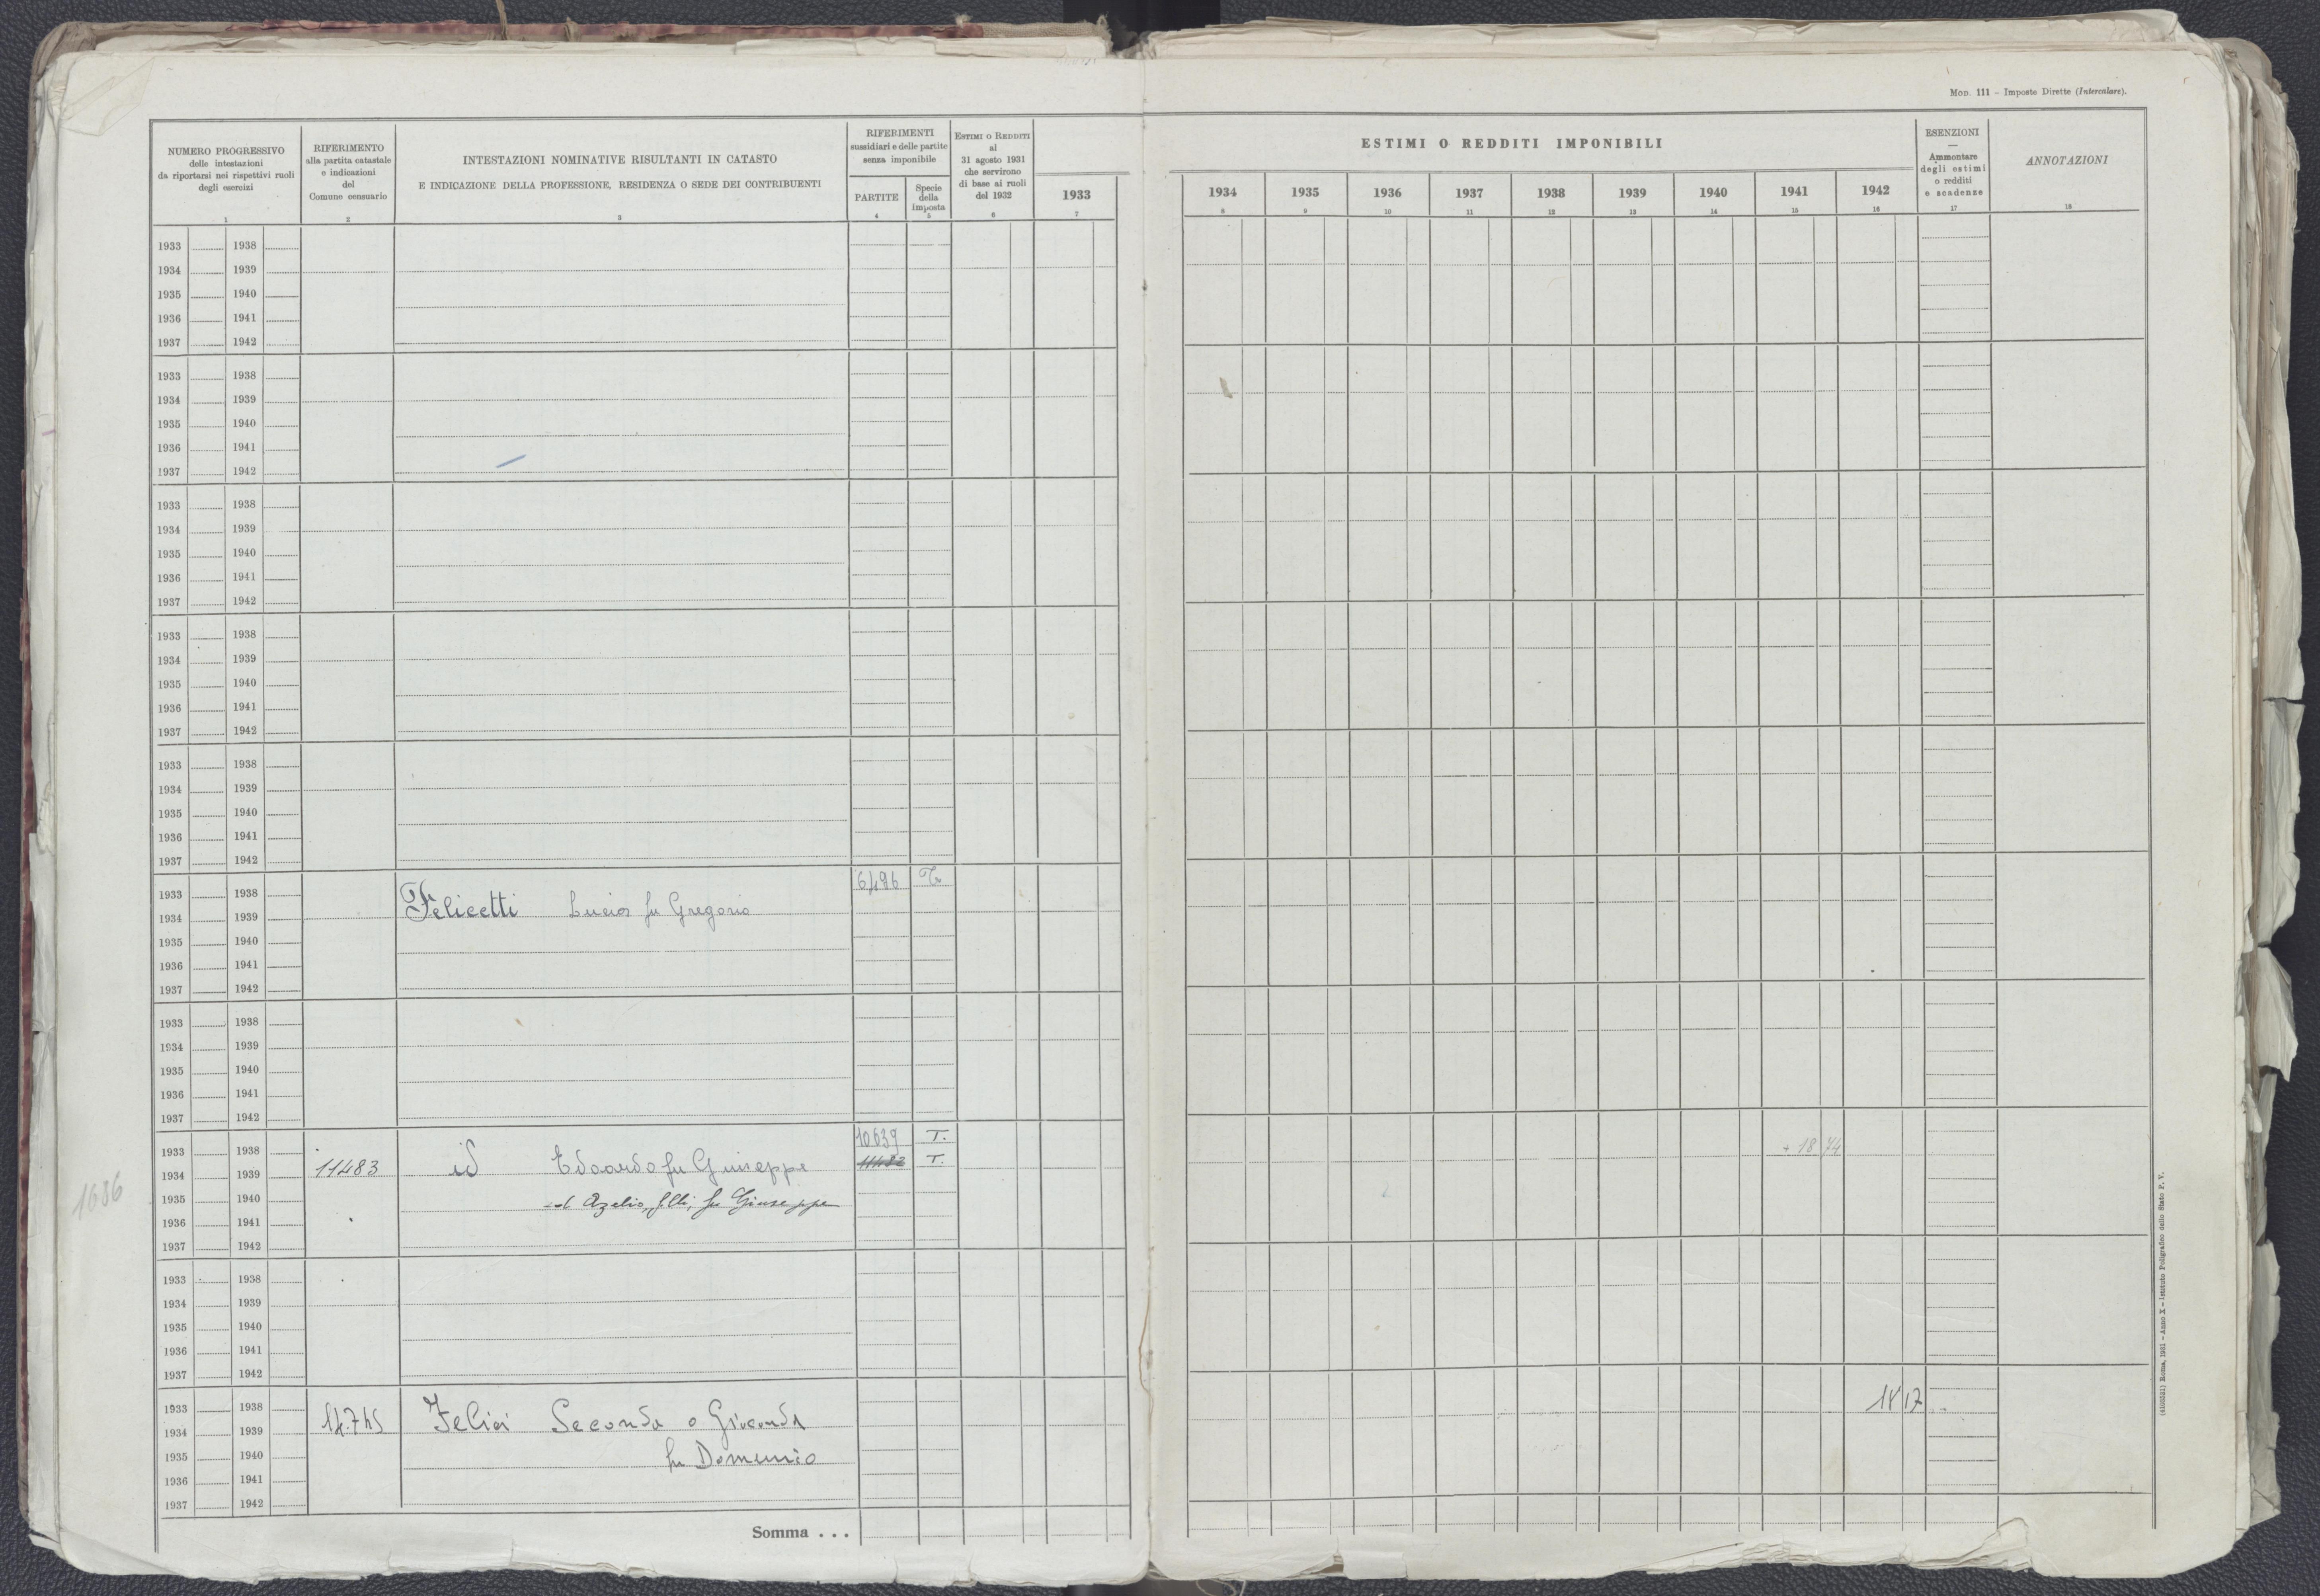 MOD. 111 – Imposte Dirette (Intercalare).
NUMERO PROGRESSIVO
delle intestazioni
da riportarsi nei rispettivi ruoli
degli esercizi
1
RIFERIMENTO
alla partita catastale
e indicazioni
del
Comune censuario
2
INTESTAZIONI NOMINATIVE RISULTANTI IN CATASTO
E INDICAZIONE DELLA PROFESSIONE, RESIDENZA O SEDE DEI CONTRIBUENTI
3
RIFERIMENTI
sussidiari e delle partite
senza imponibile
PARTITE
4
Specie
della
imposta
5
ESTIMI O REDDITI
al
31 agosto 1931
che servirono
di base ai ruoli
del 1932
6
1933
7
ESTIMI O REDDITI IMPONIBILI
1934 1935 1936 1937 1938 1939 1940 1941 1942
8 9 10 11 12 13 14 15 16
ESENZIONI
—
Ammontare
degli estimi
o redditi
e scadenze
17
ANNOTAZIONI
18
1933 1938
1934 1939
1935 1940
1936 1941
1937 1942
1933 1938
1934 1939
1935 1940
1936 1941
1937 1942
1933 1938
1934 1939
1935 1940
1936 1941
1937 1942
1933 1938
1934 1939
1935 1940
1936 1941
1937 1942
1933 1938
1934 1939
1935 1940
1936 1941
1937 1942
6496 T.
1933 1938
1934 1939 Felicetti Lucia fu Gregorio
1935 1940
1936 1941
1937 1942
1933 1938
1934 1939
1935 1940
1936 1941
1937 1942
10639 T.
1933 1938 + 18 74
1934 1939 11483 id Edoardo fu Giuseppe 11483 T.
1935 1940
ed Azelio, f.lli, fu Giuseppe
1936 1941
1937 1942
1686
1933 1938
1934 1939
1935 1940
1936 1941
1937 1942
1933 1938 18 17
1934 1939 Felici Seconda o Gioconda
1935 1940 fu Domenico
1936 1941
1937 1942
Somma . . .
(4103521) Roma, 1931 – Anno X – Istituto Poligrafico dello Stato P. V.